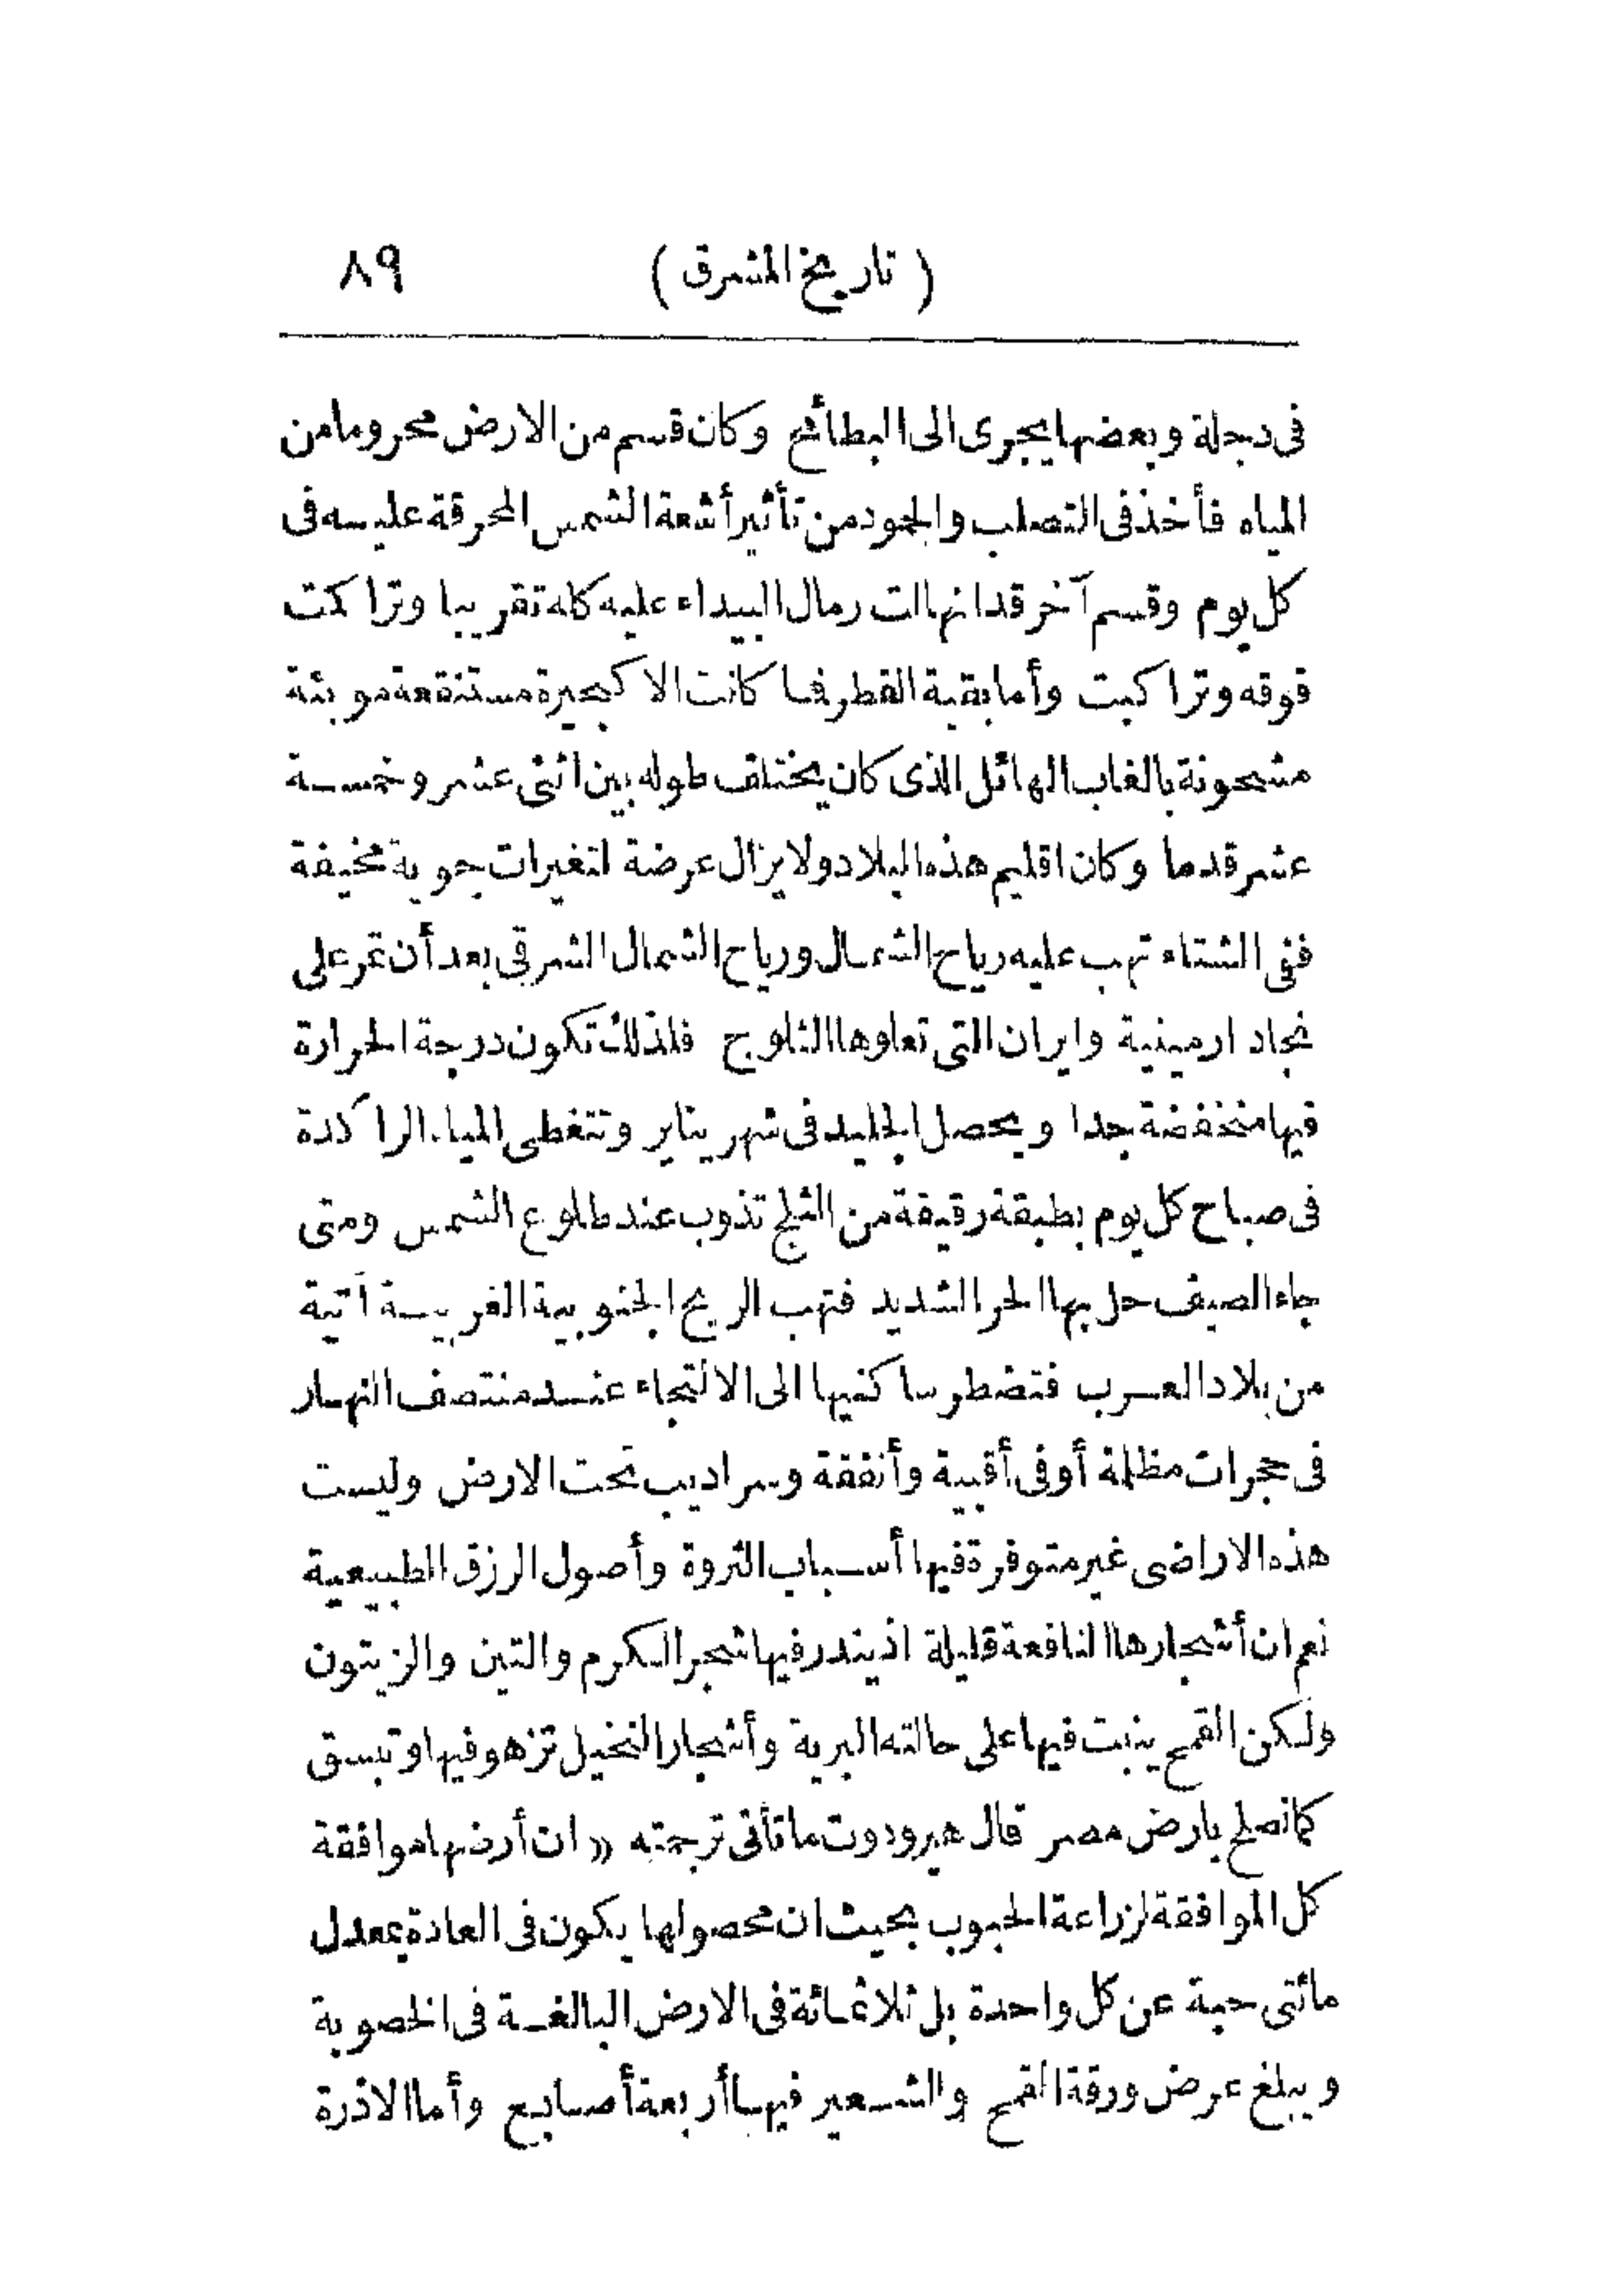 ( تاريخ المشرق ) ٨٩
فى دجلة وبعضها يجرى الى البطائح وكان قسم من الارض محروما من
المياه فأخذ فى التصلب والجمود من تأثير أشعة الشمس المحرقة عليه فى
كل يوم وقسم آخر قد انهالت رمال البيداء عليه كله تقريبا وتراكمت
فوقه وتراكبت وأما بقية القطر فما كانت الا كبحيرة مستنقعة موبئة
مشحونة بالغاب الهائل الذى كان يختلف طوله بين اثنى عشر وخمسة
عشر قدما وكان اقليم هذه البلاد ولا يزال عرضة لتغيرات جوية مخيفة
ففى الشتاء تهب عليه رياح الشمال ورياح الشمال الشرقى بعد أن تمر على
نجاد ارمينية وايران التى تعلوها الثلوج فلذلك تكون درجة الحرارة
فيها منخفضة جدا ويحصل الجليد فى شهر يناير وتتغطى المياه الراكدة
فى صباح كل يوم بطبقة رقيقة من الثلج تذوب عند طلوع الشمس ومتى
جاء الصيف حل بها الحر الشديد فتهب الريح الجنوبية الغربية آتية
من بلاد العرب فتضطر ساكنيها الى الالتجاء عند منتصف النهار
فى حجرات مظلمة أو فى أقبية وأنفقة وسراديب تحت الارض وليست
هذه الاراضى غير متوفرة فيها أسباب الثروة وأصول الرزق الطبيعية
نعم ان أشجارها النافعة قليلة اذ يندر فيها شجر الكرم والتين والزيتون
ولكن القمح ينبت فيها على حالته البرية وأشجار النخيل تزهو فيها وتبسق
كما تصلح بارض مصر قال هيرودوت ما تأتى ترجمته « ان أرضها موافقة
كل الموافقة لزراعة الحبوب بحيث ان محصولها يكون فى العادة بمعدل
مائتى حبة عن كل واحدة بل ثلاثمائة فى الارض البالغة فى الخصوبة
ويبلغ عرض ورقة القمح والشعير فيها أربعة أصابع وأما الاذرة